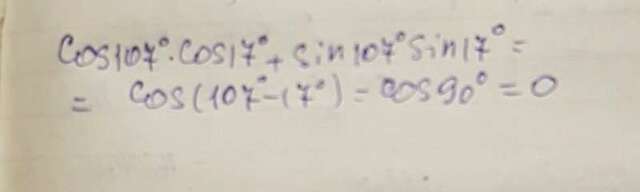 Cos107°·Cos17°+ sin107°sin17°=
= Cos(107°-17°)=cos90°=0